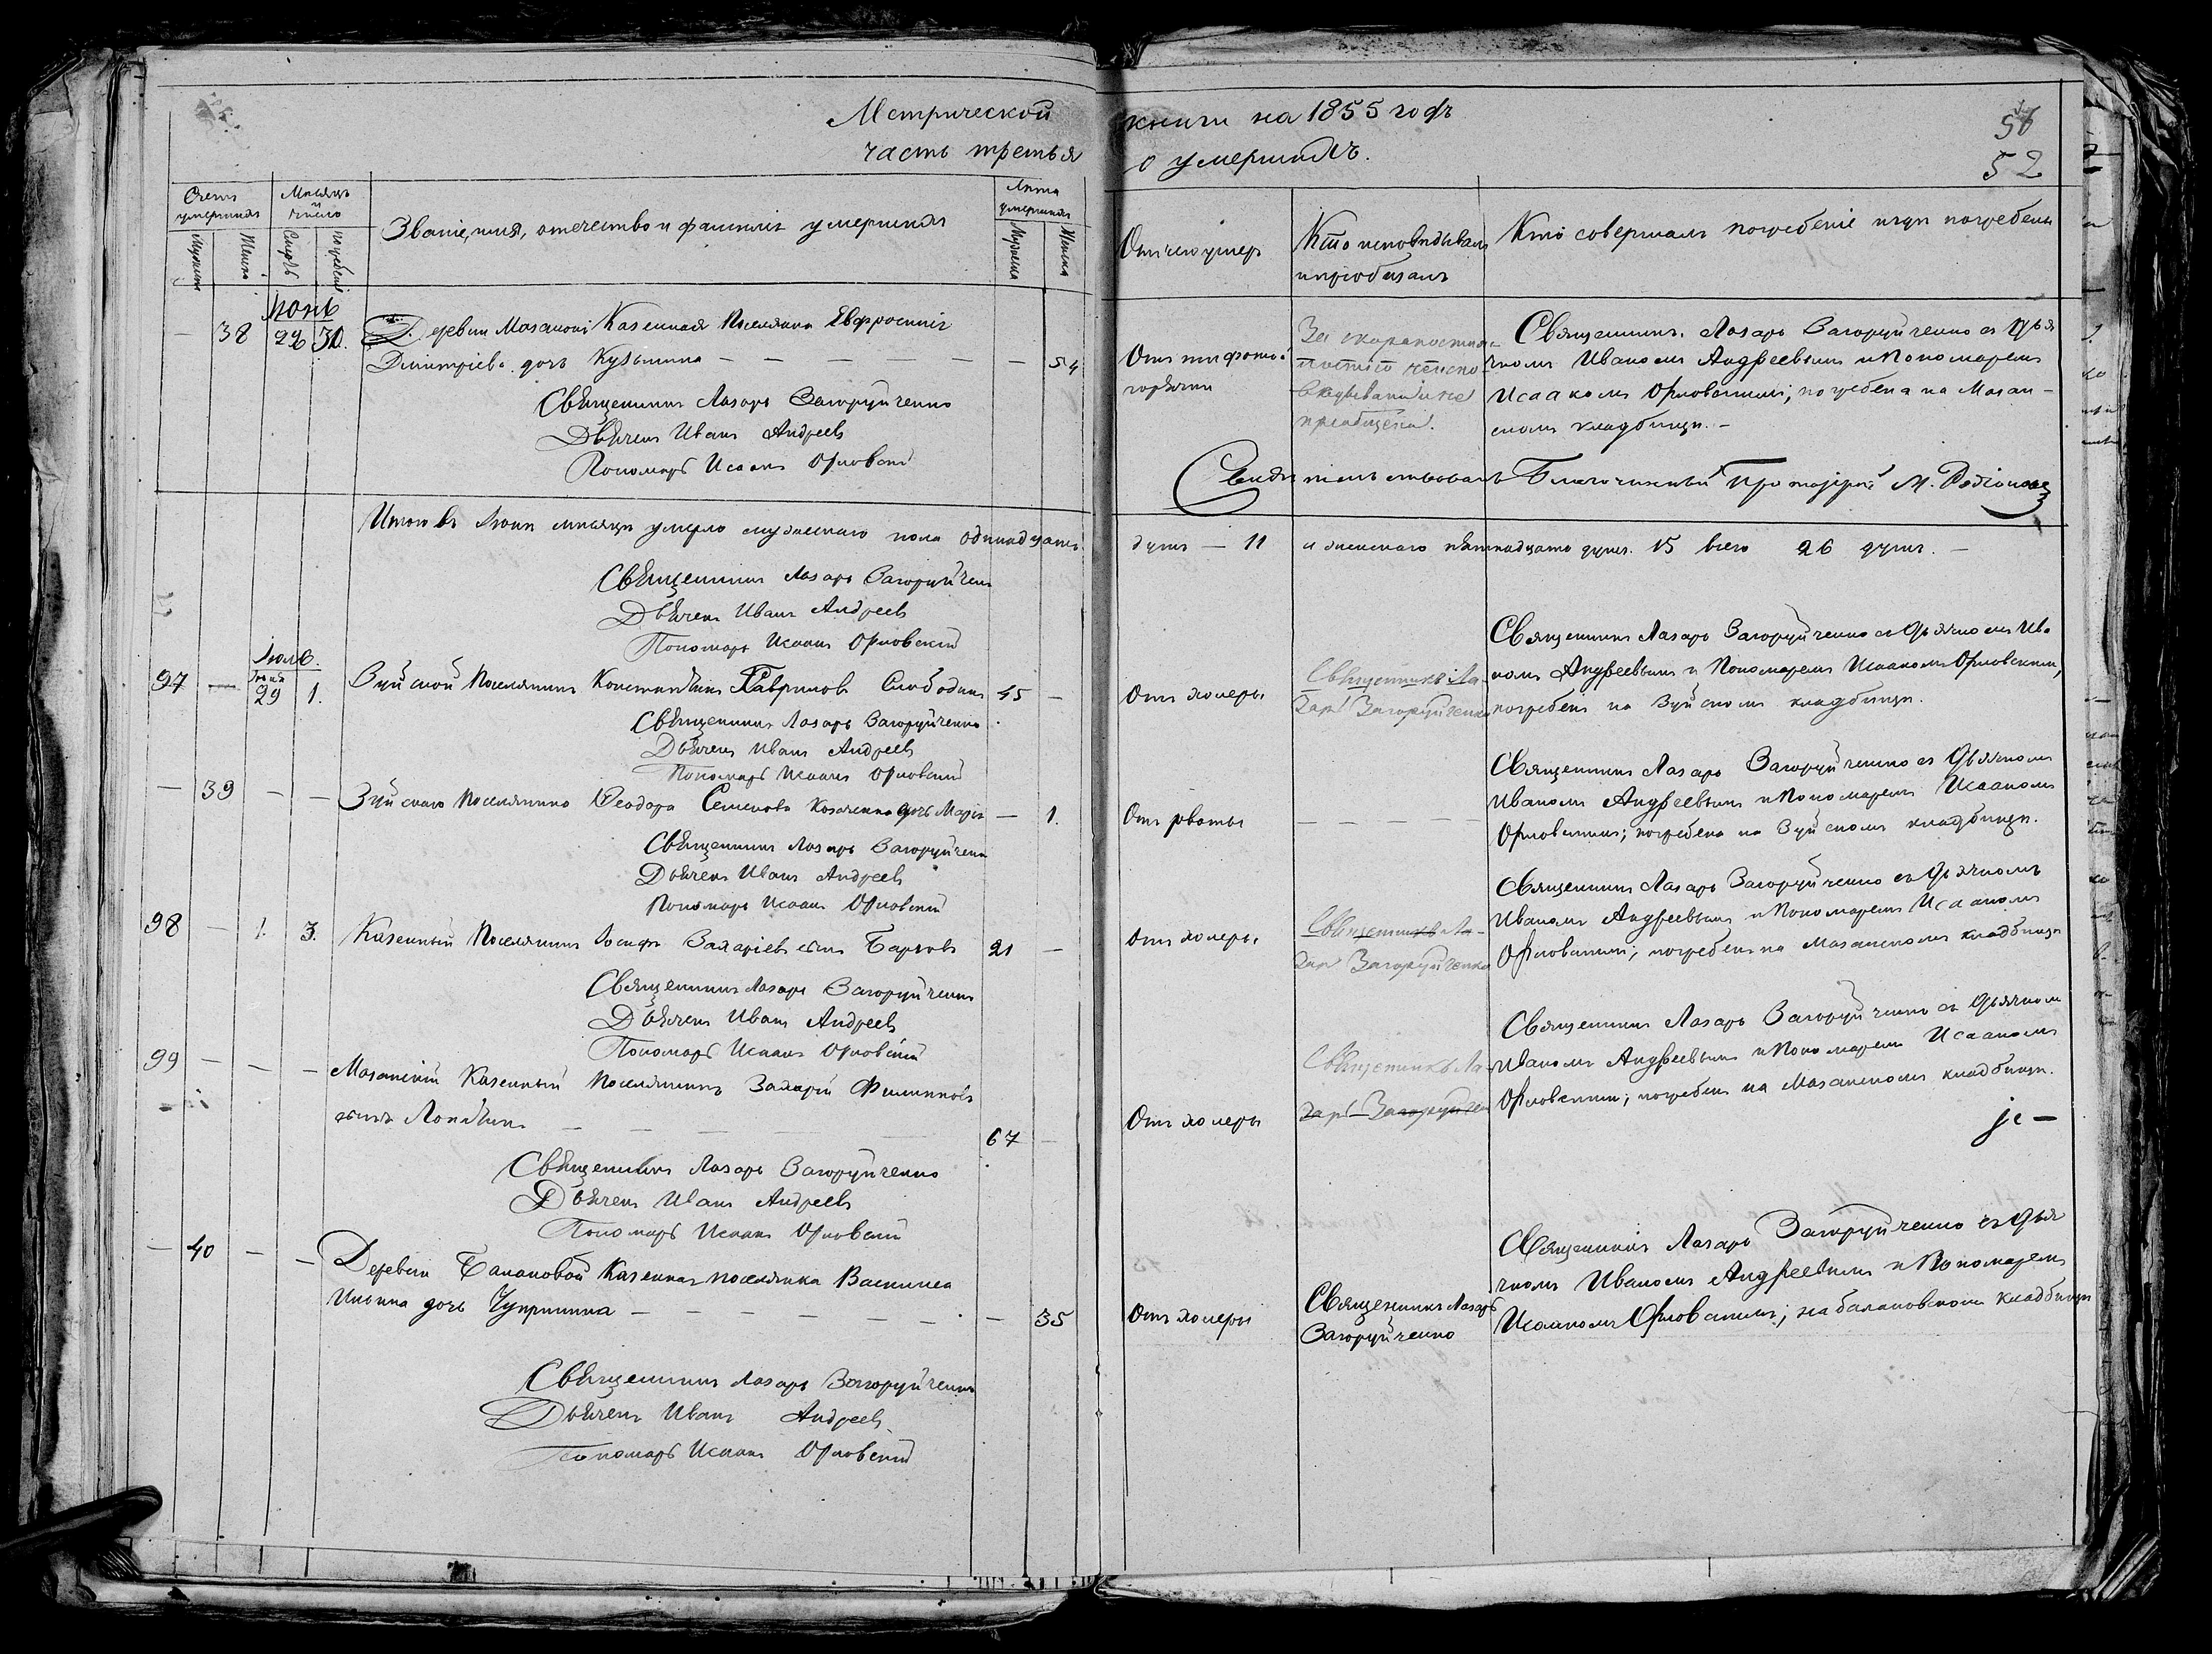 Метрической книги на 1855 годъ
часть третья о умершихъ.
56
52
Счетъ умершихъ
Мѣсяцъ и число
Званіе, имя, отечество и фамилія умершихъ
Лѣта умершихъ
Отъ чего умеръ
Кто исповѣдывалъ и пріобщалъ
Кто совершалъ погребеніе и гдѣ погребены
Мужеска
Женска
Смерть
погребенія
Мужеска
Женска
Іюнь
38 29 30. Деревни Мазанки Казенная Поселянка Евфросинія
Дмитріева дочь Кузьмина — — — — — 54
Священникъ Лазарь Загоруйченко
Дьячекъ Иванъ Андреевъ
Пономарь Исаакъ Орловскій
Отъ тифозной
горячки
За скоропостиж-
ностію неиспо-
вѣдывана и не
пріобщена.
Священникъ Лазарь Загоруйченко съ Дья
чкомъ Иваномъ Андреевымъ и Пономаремъ
Исаакомъ Орловскимъ; погребена на Мазан-
скомъ кладбищѣ. –
Свидѣтельствовалъ Благочинный Протоіерей М. Родіоновъ
Итого въ Іюнѣ мѣсяцѣ умерло мужескаго пола одинадцать
душъ — 11 и женскаго пятнадцать душъ 15 всего 26 душъ. —
Священникъ Лазарь Загоруйченко
Дьячекъ Иванъ Андреевъ
Пономарь Исаакъ Орловскій
Іюль.
97 — Іюня 29 1. Зуйской Поселянинъ Константинъ Гавриловъ Слободинъ 45 —
Священникъ Лазарь Загоруйченко
Дьячекъ Иванъ Андреевъ
Пономарь Исаакъ Орловскій
Отъ холеры
Священникъ Ла-
зарь Загоруйченко
Священникъ Лазарь Загоруйченко съ Дьячкомъ Ива
номъ Андреевымъ и Пономаремъ Исаакомъ Орловскимъ,
погребенъ на Зуйскомъ кладбищѣ.
— 39 — — Зуйскаго Поселянина Ѳеодора Семенова Козаченка дочь Марія — 1.
Священникъ Лазарь Загоруйченко
Дьячекъ Иванъ Андреевъ
Пономарь Исаакъ Орловскій
Отъ рвоты
— — — — —
Священникъ Лазарь Загоруйченко съ Дьячкомъ
Иваномъ Андреевымъ и Пономаремъ Исаакомъ
Орловскимъ; погребена на Зуйскомъ кладбищѣ.
98 — 1. 3. Казенный Поселянинъ Іосифъ Захаріевъ сынъ 21 —
Священникъ Лазарь Загоруйченко
Дьячекъ Иванъ Андреевъ
Пономарь Исаакъ Орловскій
Отъ холеры
Священникъ Ла-
зарь Загоруйченко
Священникъ Лазарь Загоруйченко съ Дьячкомъ
Иваномъ Андреевымъ и Пономаремъ Исаакомъ
Орловскимъ; погребенъ на Мазанскомъ кладбищѣ
99 — — — Мазанскій Казенный Поселянинъ Захарій Филиповъ
сынъ — — — — 67 —
Священникъ Лазарь Загоруйченко
Дьячекъ Иванъ Андреевъ
Пономарь Исаакъ Орловскій
Отъ холеры
Священникъ Ла-
зарь Загоруйченко
Священникъ Лазарь Загоруйченко съ Дьячкомъ
Иваномъ Андреевымъ и Пономаремъ Исаакомъ
Орловскимъ; погребенъ на Мазанскомъ кладбищѣ.
— 40 — — Деревни Балановой Казенная поселянка Василиса
Ильина дочь Чуприннина — — — — — — 35
Священникъ Лазарь Загоруйченко
Дьячекъ Иванъ Андреевъ
Пономарь Исаакъ Орловскій
Отъ холеры
Священникъ Лазарь
Загоруйченко
Священникъ Лазарь Загоруйченко съ Дья
чкомъ Иваномъ Андреевымъ и Пономаремъ
Исаакомъ Орловскимъ; на балановскомъ кладбищѣ